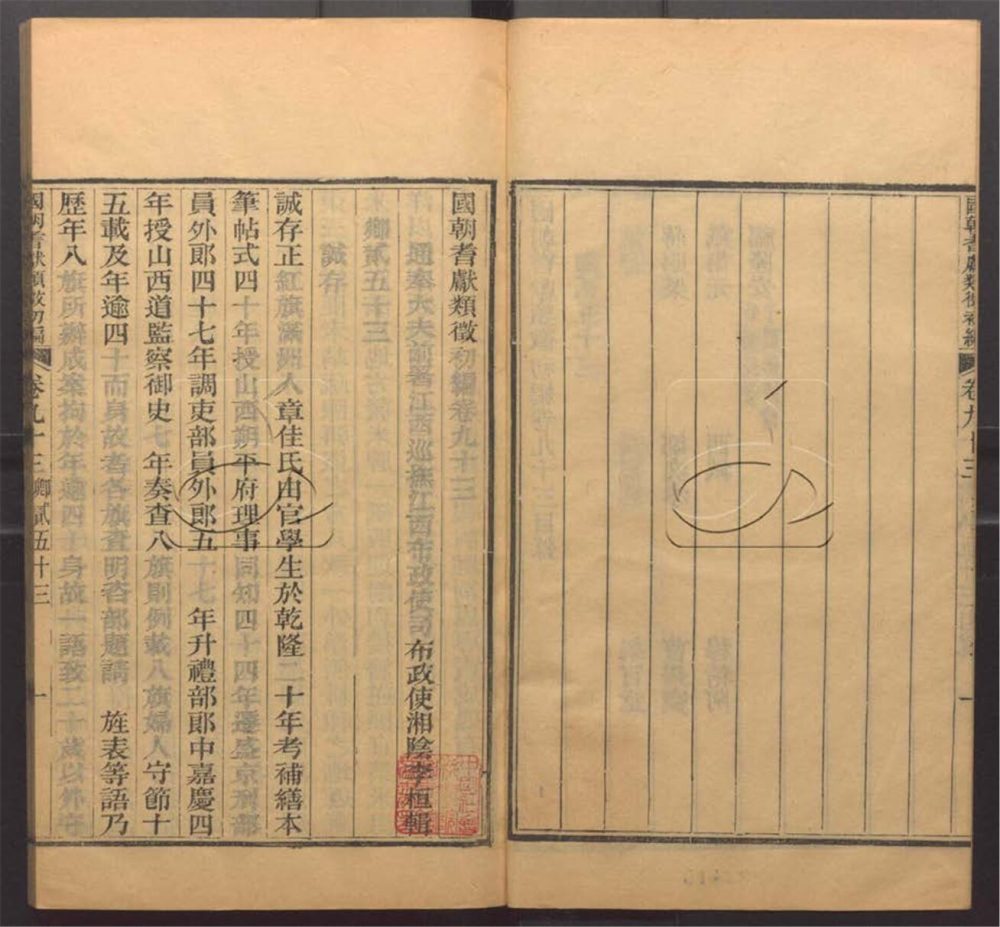 國朝耆獻類徵初編
卷九十三
一
國朝耆獻類徵初編卷九十三
通奉大夫前署江西巡撫江西布政使司布政使湘陰李桓輯
鄉貳五十三
誠存
誠存正紅旗滿洲人章佳氏由官學生於乾隆二十年考補繕本
筆帖式四十年授山西朔平府理事同知四十四年遷盛京刑部
員外郎四十七年調吏部員外郎五十七年升禮部郎中嘉慶四
年授山西道監察御史七年奏查八旗則例載八旗婦人守節十
五載及年逾四十而身故者各旗查明咨部題請 旌表等語乃
歷年八旗所辦成案拘於年逾四十身故一語致二十歲以外守
國朝耆獻類徵初編 卷九十三 卿貳五十三 一